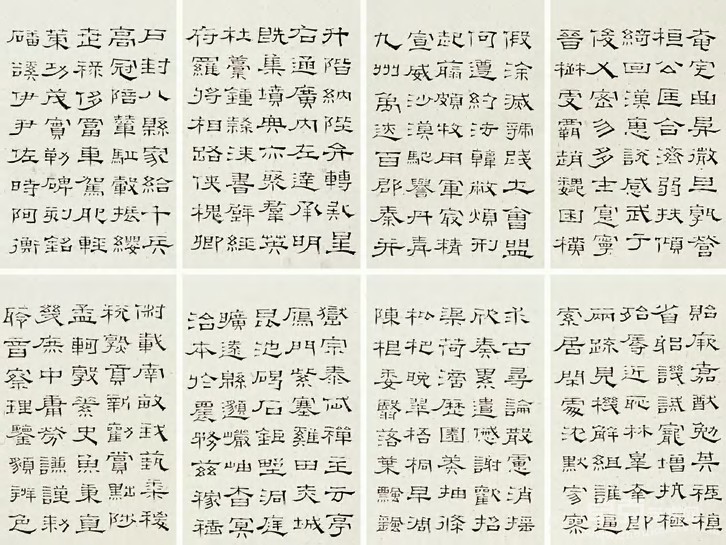 升階納陛弁轉疑星
右通廣內左達承明
既集墳典亦聚羣英
杜藁鍾隸漆書壁經
府羅將相路俠槐卿
戶封八縣家給千兵
高冠陪輦駈轂振纓
世祿侈富車駕肥輕
策功茂實勒碑刻銘
磻溪伊尹佐時阿衡
奄宅曲阜微旦孰營
桓公匡合濟弱扶傾
綺回漢惠說感武丁
俊乂密勿多士寔寧
晉楚更霸趙魏困橫
假途滅虢踐土會盟
何遵約法韓弊煩刑
起翦頗牧用軍最精
宣威沙漠馳譽丹青
九州禹跡百郡秦并
嶽宗泰岱禪主云亭
鴈門紫塞雞田赤城
昆池碣石鉅野洞庭
曠遠緜邈巖岫杳冥
治本於農務茲稼穡
俶載南畝我藝黍稷
稅熟貢新勸賞黜陟
孟軻敦素史魚秉直
幾庶中庸勞謙謹勑
聆音察理鑒貌辨色
貽厥嘉猷勉其祗植
省躬譏誡寵增抗極
殆辱近恥林皋幸即
兩疏見機解組誰逼
索居閑處沈默寂寥
求古尋論散慮逍遙
欣奏累遣慼謝歡招
渠荷的歷園莽抽條
枇杷晚翠梧桐早凋
陳根委翳落葉飄颻